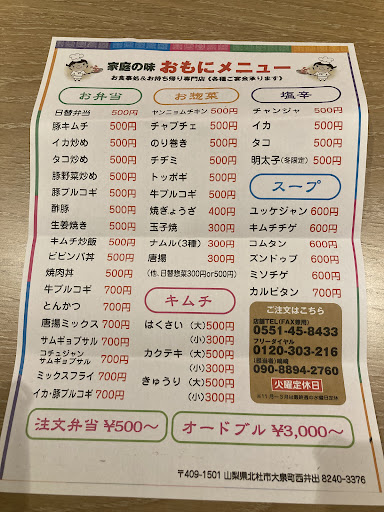 家庭の味 おもにメニュー
お食事処&お持ち帰り専門店《各種ご宴会承ります》
お弁当
日替弁当 500円
豚キムチ 500円
イカ炒め 500円
タコ炒め 500円
豚野菜炒め 500円
豚プルコギ 500円
酢豚 500円
生姜焼き 500円
キムチ炒飯 500円
ビビンバ丼 500円
焼肉丼 500円
牛プルコギ 700円
とんかつ 700円
唐揚ミックス 700円
サムギョプサル 700円
コチュジャン
サムギョプサル 700円
ミックスフライ 700円
イカ・豚プルコギ 700円
お惣菜
ヤンニョムチキン 500円
チャプチェ 500円
のり巻き 500円
チヂミ 500円
トッポギ 500円
牛プルコギ 500円
焼ぎょうざ 400円
玉子焼 300円
ナムル(3種) 300円
唐揚 300円
(他、日替惣菜300円or500円)
キムチ
はくさい (大)500円
(小)300円
カクテキ (大)500円
(小)300円
きゅうり (大)500円
(小)300円
塩辛
チャンジャ 500円
イカ 500円
タコ 500円
明太子(冬限定) 500円
スープ
ユッケジャン 600円
キムチチゲ 600円
コムタン 600円
ズンドゥブ 600円
ミソチゲ 600円
カルビタン 700円
ご注文はこちら
店舗TEL(FAX兼用)
0551-45-8433
フリーダイヤル
0120-303-216
090-8894-2760
火曜定休日
注文弁当 ¥500〜
オードブル ¥3,000〜
〒409-1501 山梨県北杜市大泉町西井出 8240-3376